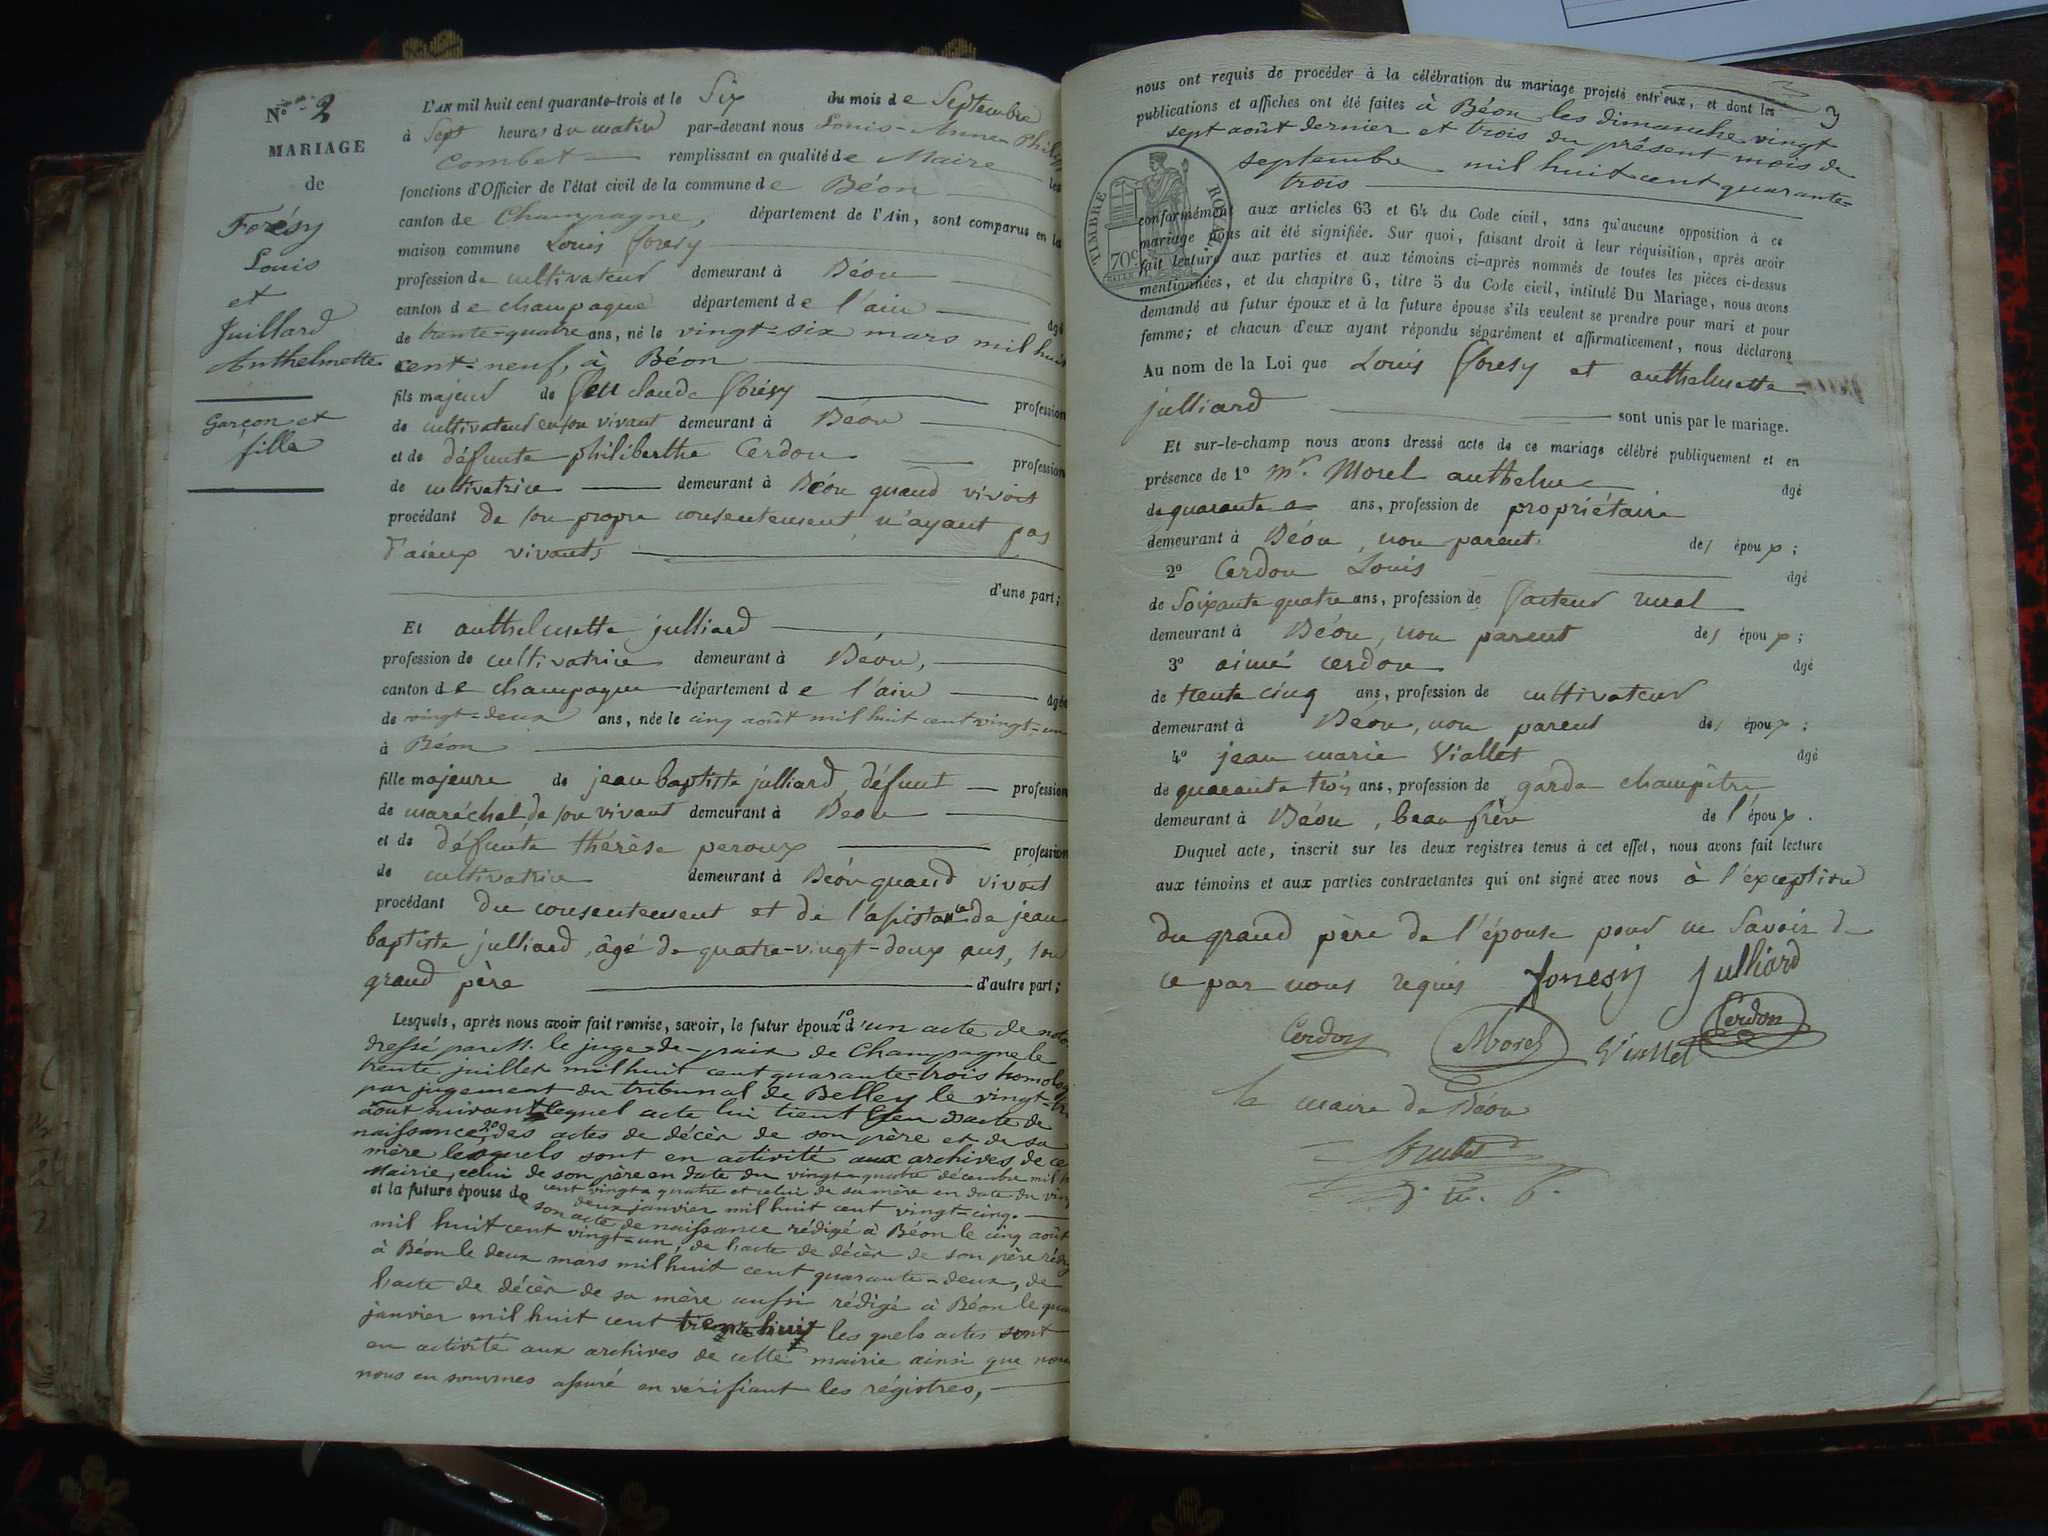 No 2
MARIAGE
de
Forésy
Louis
et
Juillard
Anthelmette
Garçon et
fille
L'AN mil huit cent quarante-trois et le Six du mois de Septembre
à Sept heures du matin par-devant nous Louis-Annen
Combet remplissant en qualité de Maire les
fonctions d'Officier de l'état civil de la commune de Béon
canton de Champagne, département de l'Ain, sont comparus en la
maison commune Louis foresy
profession de cultivateur demeurant à Béon
canton de champagne département de l'ain agé
de trente-quatre ans, né le vingt-six mars mil huit
cent-neuf, à Béon
fils majeur de feu claude forésy profession
de cultivateur en son vivant demeurant à Béon
et de défunte philiberthe Cerdon profession
de cultivatrice demeurant à Béon quand vivoit
procédant de son propre consentement, n'ayant pas
d'aieux vivants
d'une part;
Et anthelmette julliard
profession de cultivatrice demeurant à Béon,
canton de champagne département de l'ain agée
de vingt-deux ans, née le cinq août mil huit cent vingt-un
à Béon
fille majeure de jean baptiste julliard, défunt profession
de maréchal de son vivant demeurant à Beon
et de défunte thérèse peroux profession
de cultivatrice demeurant à Béon quand vivoit
procédant du consentement et de l'assistance de jean
baptiste julliard, âgé de quatre-vingt-deux ans, son
grand père d'autre part;
Lesquels, après nous avoir fait remise, savoir, le futur époux 1o d'un acte de
dressé par M. le juge-de-paix de Champagne le
trente juillet mil huit cent quarante-trois
par jugement du tribunal de Belley le vingt-
août suivant lequel acte lui tient lieu d'acte de
naissance, 2o des actes de décès de son père et de sa
mère lesquels sont en activité aux archives de ce
Mairie, celui de son père en date du vingt-quatre décembre mil
cent vingt-quatre et celui de sa mère en date du
deux janvier mil huit cent vingt-cinq.
et la future épouse de son acte de naissance rédigé à Béon le cinq août
mil huit cent vingt-un, de l'acte de décès de son père
à Béon le deux mars mil huit cent quarante-deux, de
l'acte de décès de sa mère aussi rédigé à Béon le
janvier mil huit cent trente huit les quels actes sont
en activité aux archives de cette mairie ainsi que nous
nous en sommes assuré en vérifiant les régistres,
3
nous ont requis de procéder à la célébration du mariage projeté entr'eux, et dont les
publications et affiches ont été faites à Béon les dimanche vingt
sept août dernier et trois du présent mois de
septembre mil huit cent quarante-
trois
TIMBRE ROYAL
70c
conformément aux articles 63 et 64 du Code civil, sans qu'aucune opposition à ce
mariage nous ait été signifiée. Sur quoi, faisant droit à leur réquisition, après avoir
fait lecture aux parties et aux témoins ci-après nommés de toutes les pièces ci-dessus
mentionnées, et du chapitre 6, titre 5 du Code civil, intitulé Du Mariage, nous avons
demandé au futur époux et à la future épouse s'ils veulent se prendre pour mari et pour
femme; et chacun d'eux ayant répondu séparément et affirmativement, nous déclarons
Au nom de la Loi que Louis foresy et anthelmette
julliard sont unis par le mariage.
Et sur-le-champ nous avons dressé acte de ce mariage célébré publiquement et en
présence de 1o mr. Morel anthelme agé
de quarante ans, profession de propriétaire
demeurant à Béon, non parent des époux;
2o Cerdon Louis agé
de Soixante quatre ans, profession de facteur rural
demeurant à Béon, non parent des époux;
3o aimé cerdon agé
de trente cinq ans, profession de cultivateur
demeurant à Béon, non parent des époux;
4o jean marie Viallet agé
de quarante trois ans, profession de garde champêtre
demeurant à Béon, beau frère de l'époux.
Duquel acte, inscrit sur les deux registres tenus à cet effet, nous avons fait lecture
aux témoins et aux parties contractantes qui ont signé avec nous à l'exception
du grand père de l'épouse pour ne Savoir de
ce par nous requis foresy Julliard
Cerdon Morel Viallet Cerdon
le maire de Béon